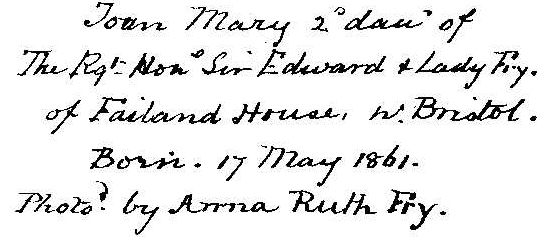 Joan Mary 2ᵈ dauʳ of
The Rgᵗ Honᵉ Sir Edward & Lady Fry.
of Failand House, nʳ. Bristol.
Born. 17 May 1861.
Photoᵈ. by Anna Ruth Fry.